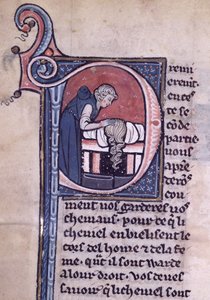 P remi
erement
en ces
te se
cōde
partie
uous
aprē
derōs
ment uos garderes uos
cheuiaus. por ce q̄ li
cheuiel enbielisent le
cors del home & de la fe
me. q̄nt il sont warde
a lour droit. Vos deues
sauoir q̄ li cheuiel sont